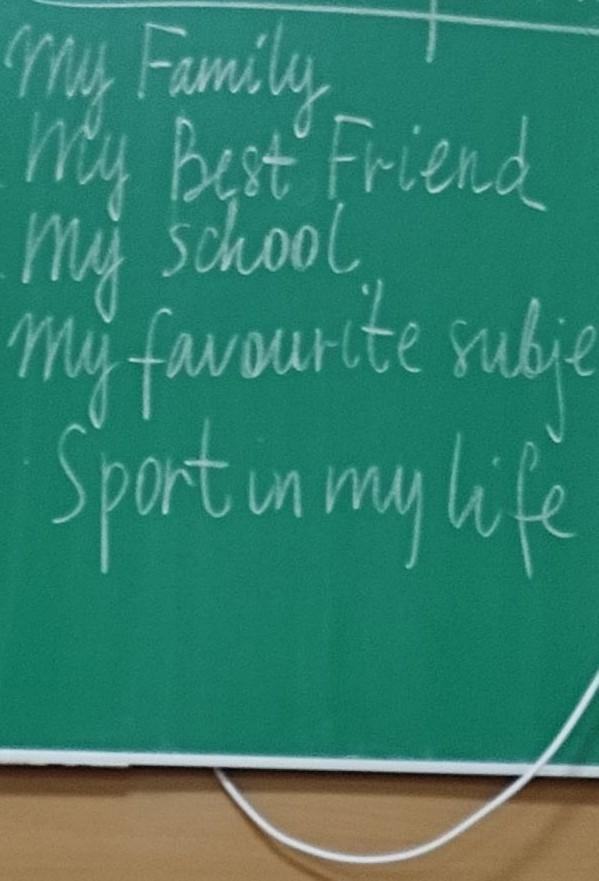 My Family
My Best Friend
My school
My favourite subje
Sport in my life